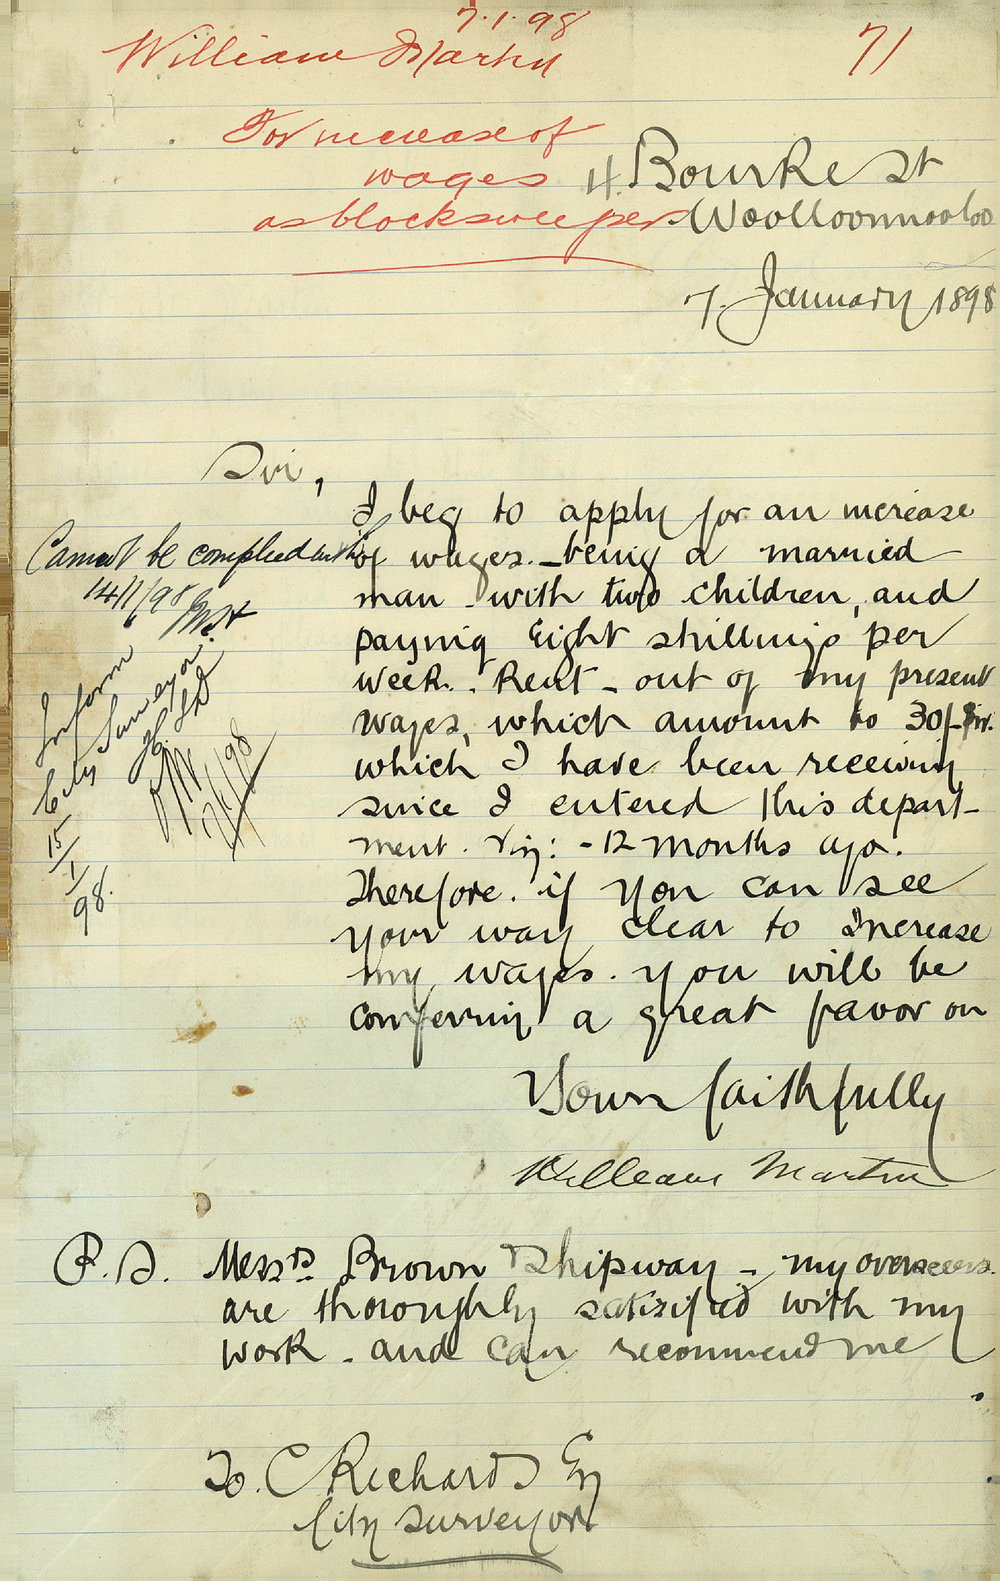 7.1.98
William Martin
71
For increase of
wages
as blocksweeper
4. Bourke St
Woolloomooloo
7. January 1898
Sir,
I beg to apply for an increase
of wages. being a married
man with two children, and
paying Eight shillings per
week. Rent - out of my present
wages, which amount to 30/-
which I have been receiving
since I entered this depart-
ment. viz: - 12 months ago.
Therefore. if you can see
your way clear to Increase
my wages. you will be
conferring a great favor on
Yours faithfully
William Martin
Cannot be complied with
14/1/98
Inform
City Surveyor
15/1/98.
P.S. Messrs. Brown & Shipway - my overseers.
are thoroughly satisified with my
work - and can recommend me
To. C Richards Esq
City Surveyor